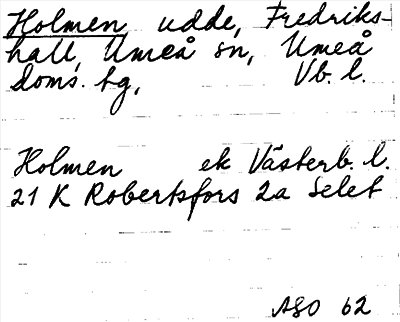 Holmen, udde, Fredriks-
hall, Umeå sn, Umeå
doms. hg, Vb. l.
Holmen ek Västerb. l.
21 K Robertsfors 2a Selet
ASO 62